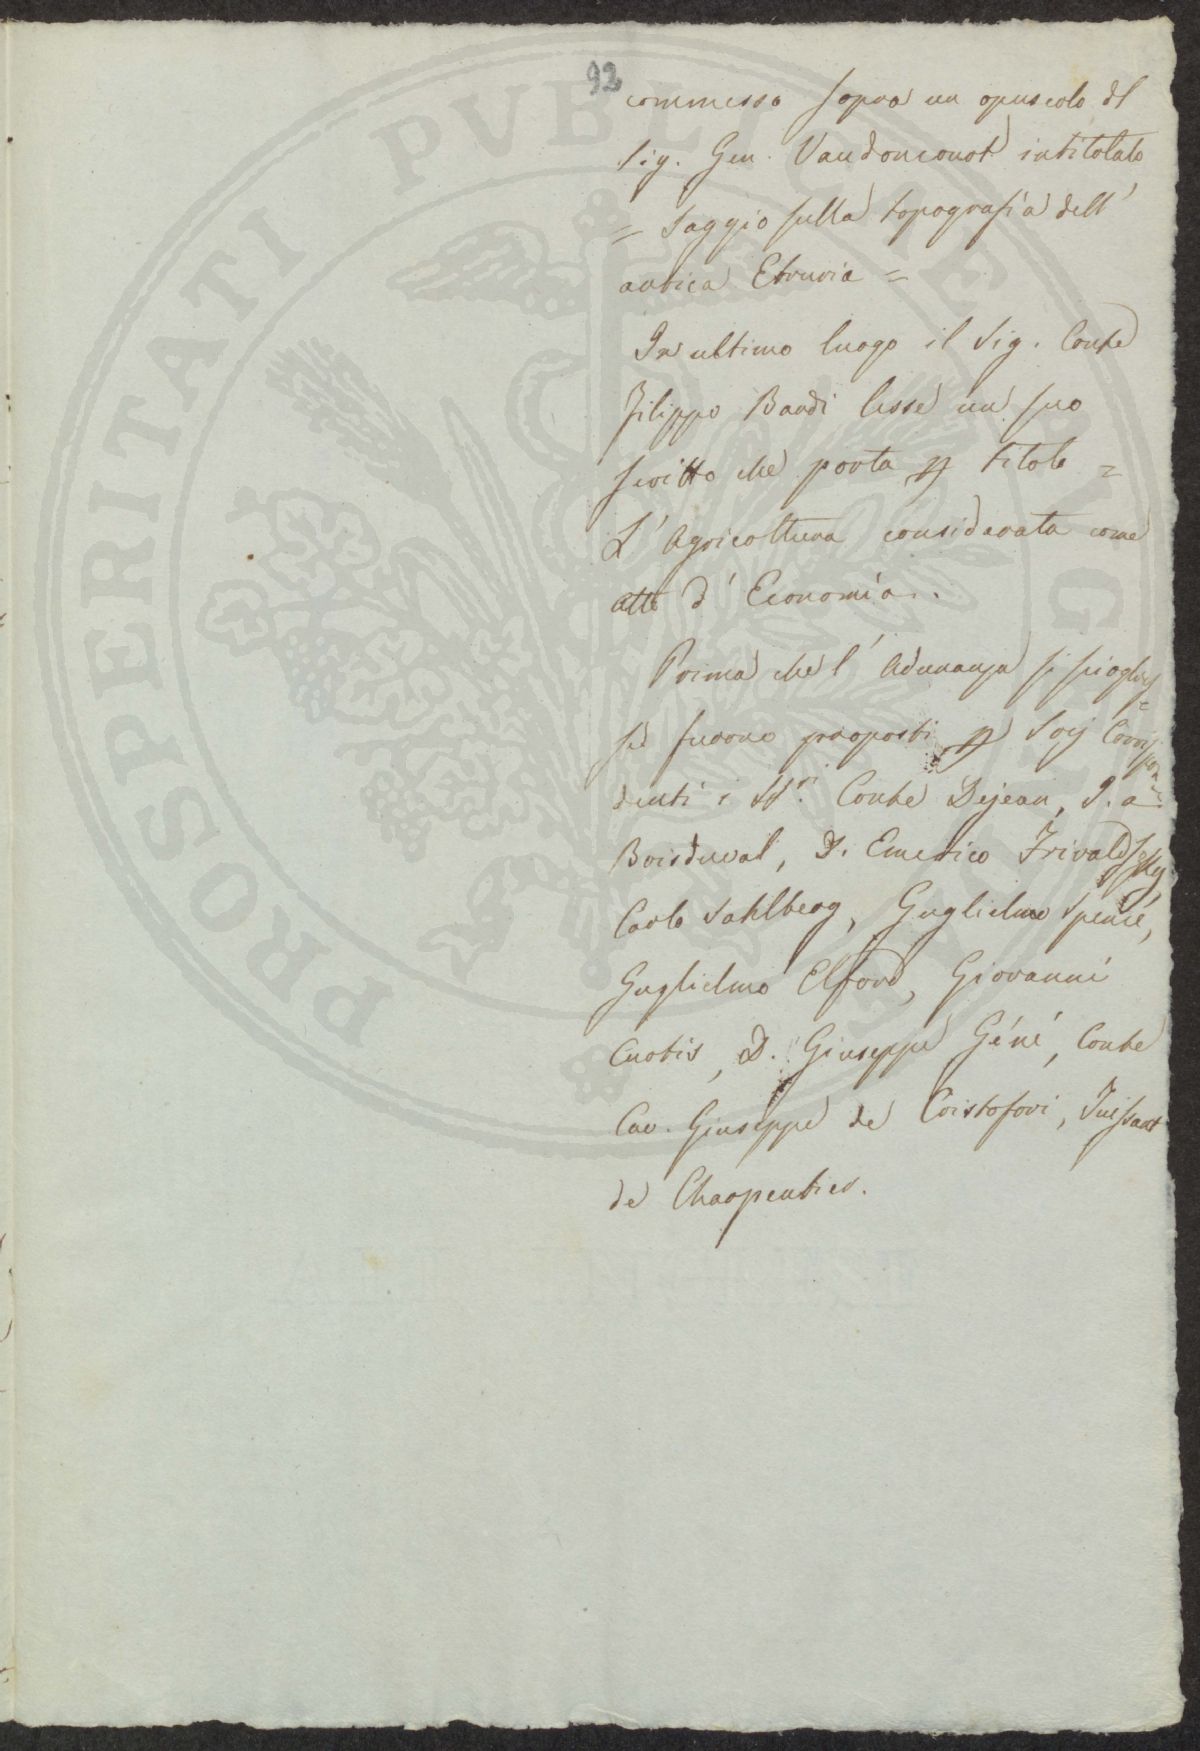 PROSPERITATI PVBLICAE AVGENDAE
92
commesso sopra un opuscolo del
Sig. Gen. Vaudoncourt intitolato
= Saggio sulla topografia dell'
antica Etruria =
In ultimo luogo il Sig. Conte
Filippo Bardi lesse un suo
scritto che porta p titolo =
L'Agricoltura considerata come
atto d'Economia.
Prima che l'Adunanza si scioglies=
se furono proposti p Socj Corrispon=
denti i SS.ri Conte Dejean, D.a
Boisduval, D. Emerico Frivaldszky,
Carlo Sahlberg, Guglielmo Spence,
Guglielmo Elford, Giovanni
Curtis, D. Giuseppe Géné, Conte
Cav. Giuseppe de Cristofori,
de Charpentier.